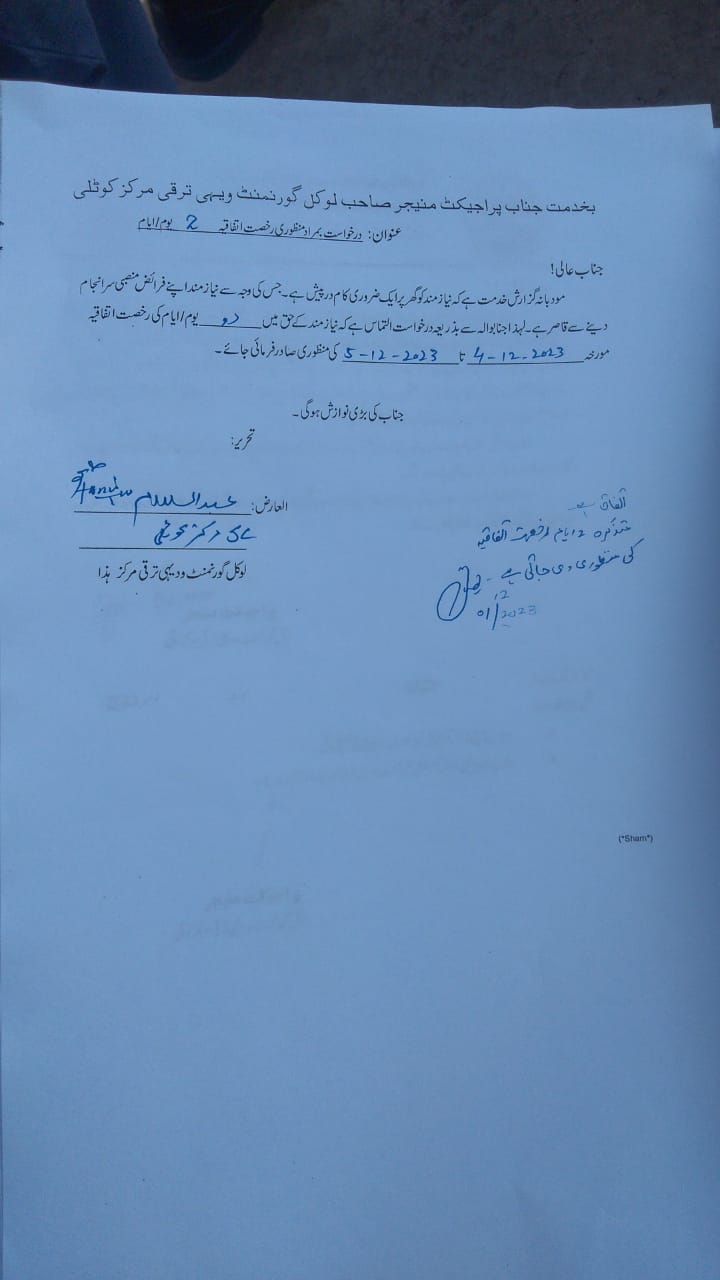 بخدمت جناب پراجیکٹ منیجر صاحب لوکل گورنمنٹ ویہی ترقی مرکز کوٹلی
عنوان: درخواست بمراد منظوری رخصت اتفاقیہ 2 یوم/ایام
جناب عالی!
مودبانہ گزارش خدمت ہے کہ نیاز مند کو گھر پر ایک ضروری کام درپیش ہے۔ جس کی وجہ سے نیاز مند اپنے فرائض منصبی سرانجام
دینے سے قاصر ہے۔ لہذا جناب والہ سے بذریعہ درخواست التماس ہے کہ نیاز مند کے حق میں دو یوم/ایام کی رخصت اتفاقیہ
مورخہ 4-12-2023 تا 5-12-2023 کی منظوری صادر فرمائی جائے۔
جناب کی بڑی نوازش ہوگی۔
تحریر:
العارض: عبدالسلام
لوکل گورنمنٹ ودیہی ترقی مرکز ہذا
اتفاق ہے
متذکرہ 2 ایام رخصت اتفاقیہ
کی منظوری دی جاتی ہے۔
01/12/2023
("Sham")